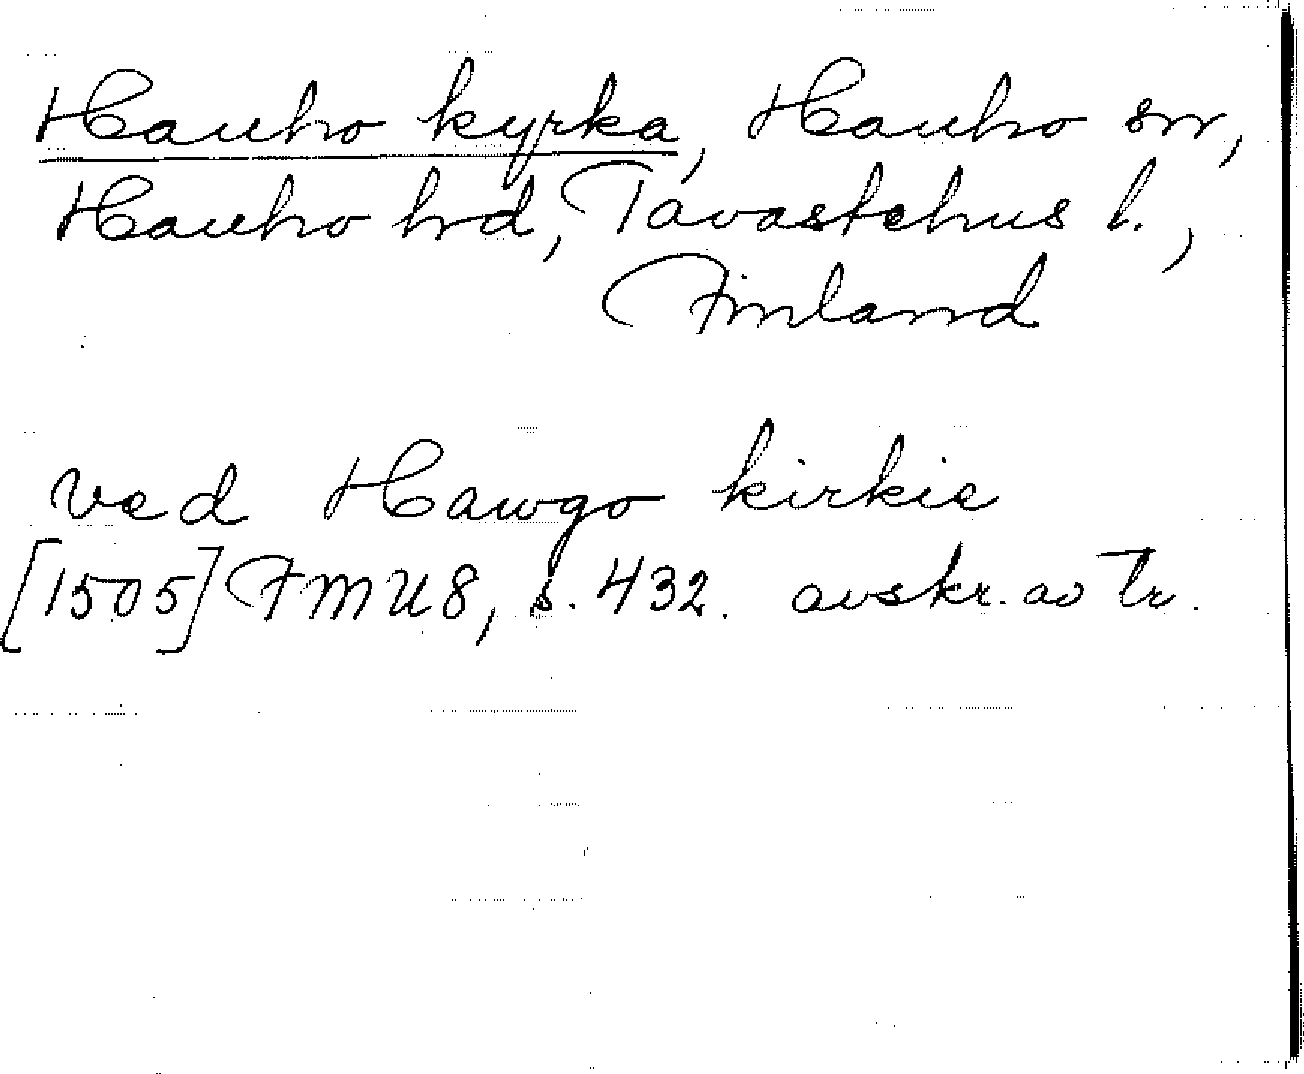 Hauho kyrka, Hauho sn,
Hauho hrd, Tavastehus l.,
Finland
ved Hawgo kirkie
[1505] FMU 8, s. 432. avskr. av tr.